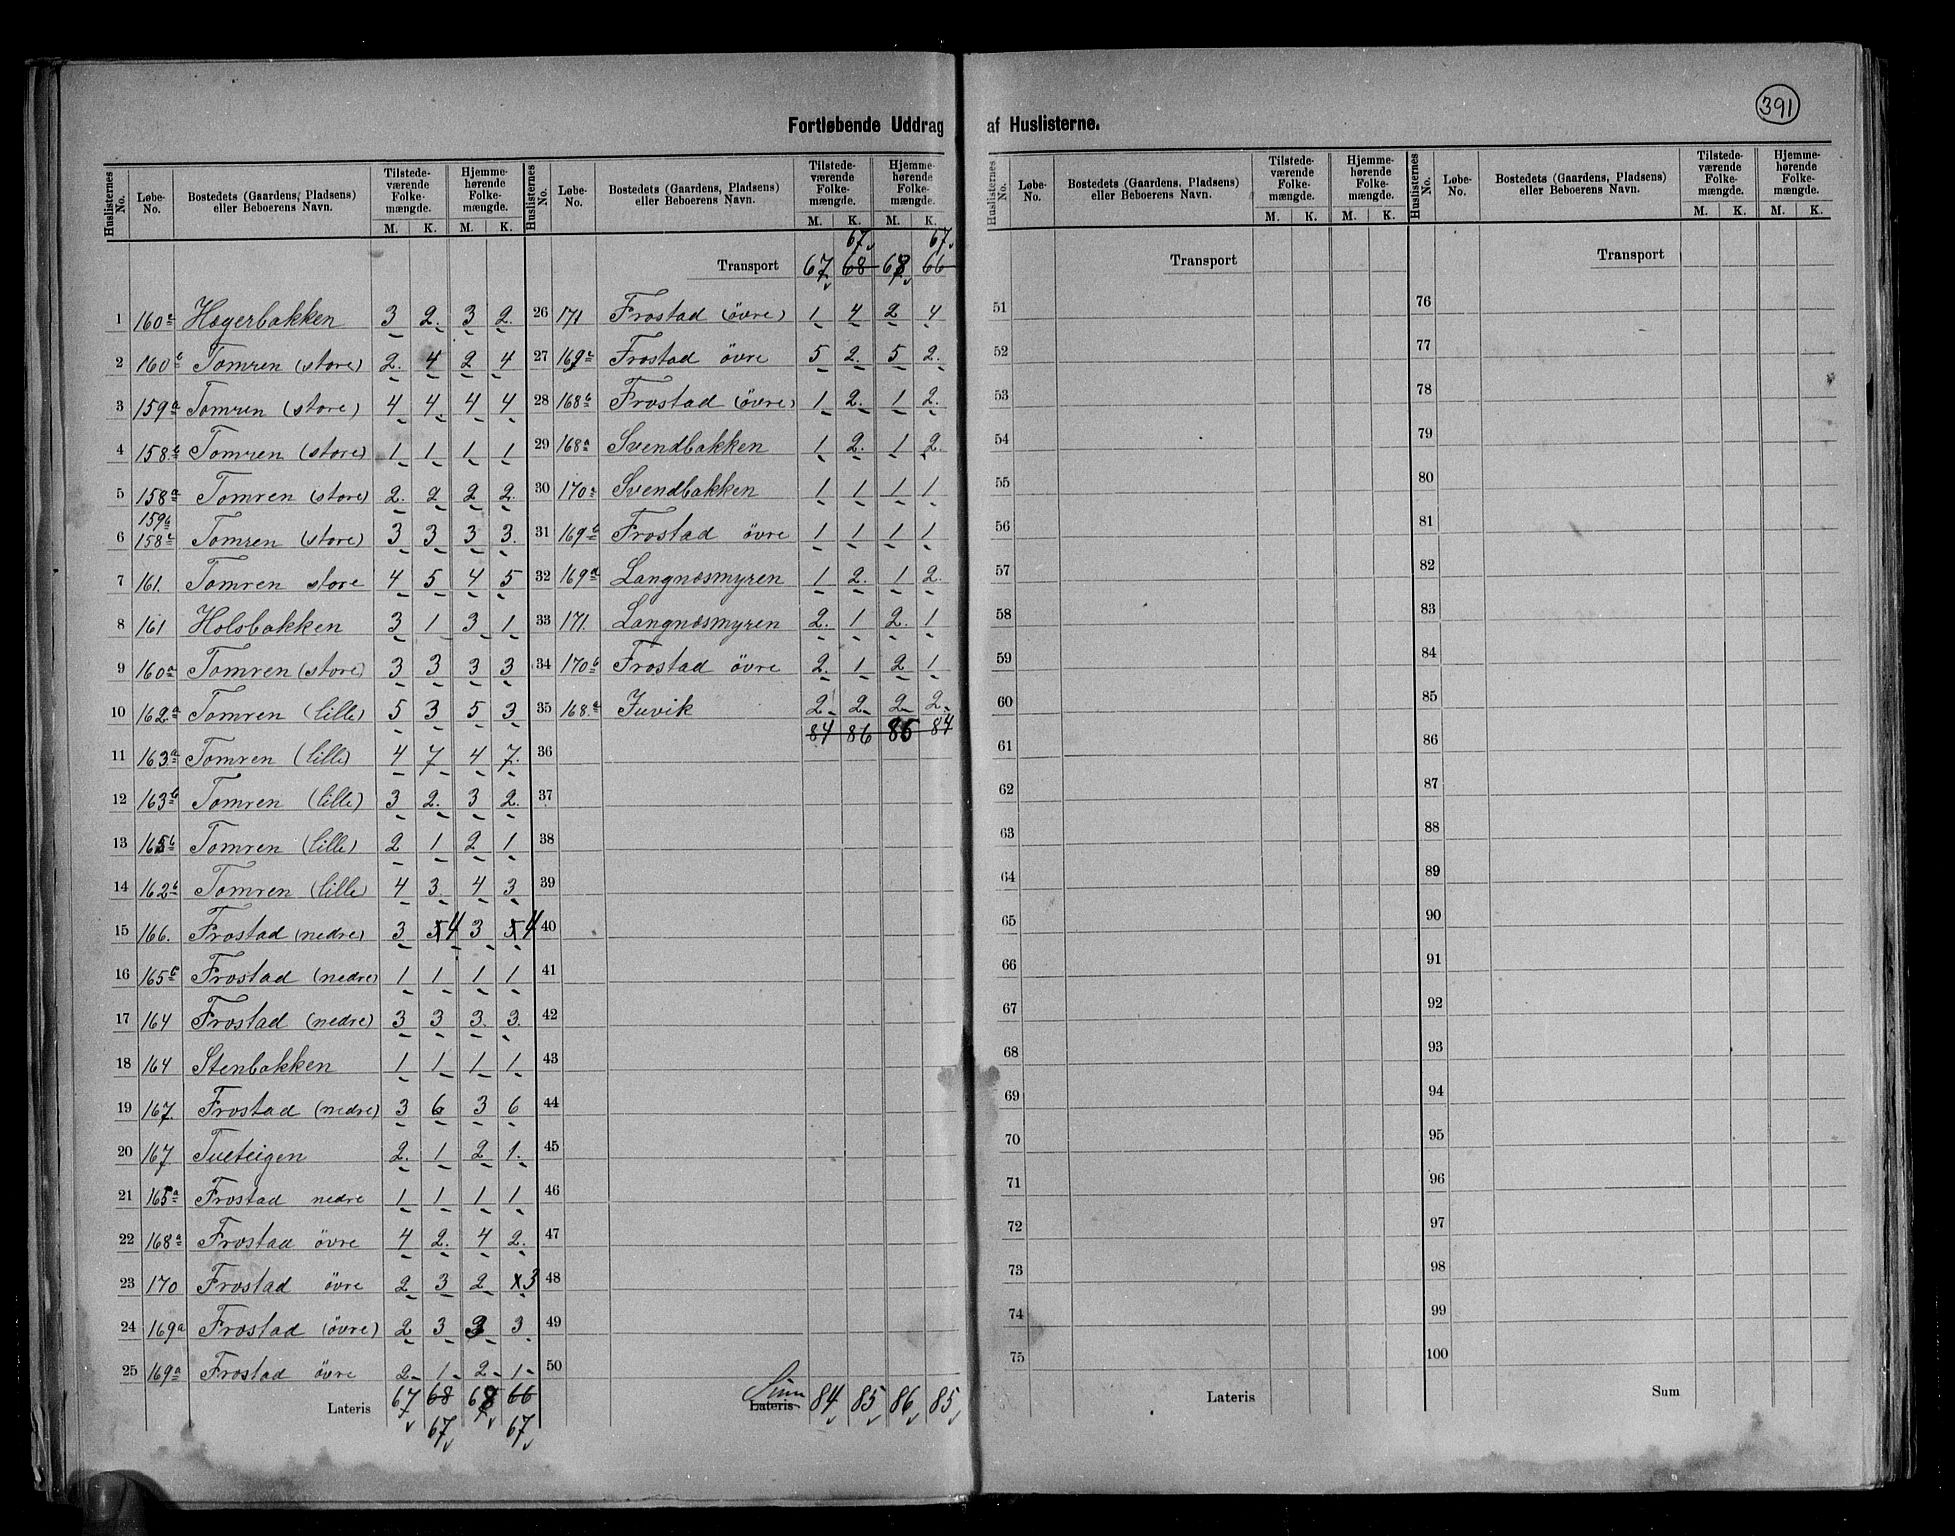 391
Fortløbende Uddrag af Huslisterne.
Huslisternes No. | Løbe-No. | Bostedets (Gaardens, Pladsens) eller Beboerens Navn. | Tilstedeværende Folkemængde. M. K. | Hjemmehørende Folkemængde. M. K.
1 160c Hagerbakken 3 2 3 2
2 160b Tomren (store) 2 4 2 4
3 159a Tomren (store) 4 4 4 4
4 158b Tomren (store) 1 1 1 1
5 158a Tomren (store) 2 2 2 2
159b
6 158c Tomren (store) 3 3 3 3
7 161. Tomren store 4 5 4 5
8 161 Holsbakken 3 1 3 1
9 160a Tomren (store) 3 3 3 3
10 162a Tomren (lille) 5 3 5 3
11 163a Tomren (lille) 4 7 4 7
12 163b Tomren (lille) 3 2 3 2
13 165b Tomren (lille) 2 1 2 1
14 162b Tomren (lille) 4 3 4 3
15 166. Frostad (nedre) 3 5 4 3 5 4
16 165c Frostad (nedre) 1 1 1 1
17 164 Frostad (nedre) 3 3 3 3
18 164 Stenbakken 1 1 1 1
19 167. Frostad (nedre) 3 6 3 6
20 167 Tueteigen 2 1 2 1
21 165a Frostad nedre 1 1 1 1
22 168a Frostad övre 4 2 4 2
23 170 Frostad övre 2 3 2 3
24 169a Frostad (övre) 2 3 3 3
25 169a Frostad övre 2 1 2 1
Lateris 67 68 68 66
67 67
Huslisternes No. | Løbe-No. | Bostedets (Gaardens, Pladsens) eller Beboerens Navn. | Tilstedeværende Folkemængde. M. K. | Hjemmehørende Folkemængde. M. K.
67 67
Transport 67 68 68 66
26 171 Frostad (övre) 1 4 2 4
27 169c Frostad övre 5 2 5 2
28 168b Frostad (övre) 1 2 1 2
29 168a Svendbakken 1 2 1 2
30 170a Svendbakken 1 1 1 1
31 169b Frostad övre 1 1 1 1
32 169a Langnæsmyren 1 2 1 2
33 171. Langnæsmyren 2 1 2 1
34 170b Frostad övre 2 1 2 1
35 168.a Juvik 2 2 2 2
84 86 86 84
36
37
38
39
40
41
42
43
44
45
46
47
48
49
50
Sum
Lateris 84 85 86 85
Huslisternes No. | Løbe-No. | Bostedets (Gaardens, Pladsens) eller Beboerens Navn. | Tilstedeværende Folkemængde. M. K. | Hjemmehørende Folkemængde. M. K.
Transport
51
52
53
54
55
56
57
58
59
60
61
62
63
64
65
66
67
68
69
70
71
72
73
74
75
Lateris
Huslisternes No. | Løbe-No. | Bostedets (Gaardens, Pladsens) eller Beboerens Navn. | Tilstedeværende Folkemængde. M. K. | Hjemmehørende Folkemængde. M. K.
Transport
76
77
78
79
80
81
82
83
84
85
86
87
88
89
90
91
92
93
94
95
96
97
98
99
100
Sum